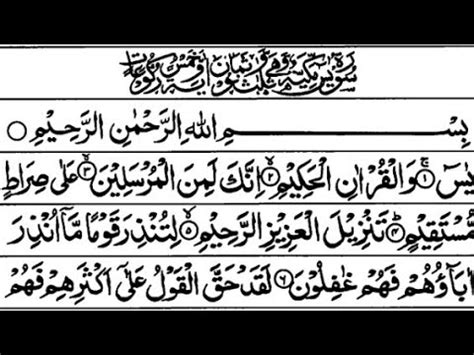 سورة يس مكية وهي ثلث وثمانون اية وخمس ركوعات
بِسْمِ اللهِ الرَّحْمٰنِ الرَّحِيْمِ ○
يٰسٓ ۚ﴿۱﴾ وَالْقُرْاٰنِ الْحَكِيْمِ ۙ﴿۲﴾ اِنَّكَ لَمِنَ الْمُرْسَلِيْنَ ۙ﴿۳﴾ عَلٰى صِرَاطٍ
مُّسْتَقِيْمٍ ؕ﴿۴﴾ تَنْزِيْلَ الْعَزِيْزِ الرَّحِيْمِ ۙ﴿۵﴾ لِتُنْذِرَ قَوْمًا مَّاۤ اُنْذِرَ
اٰبَآؤُهُمْ فَهُمْ غٰفِلُوْنَ ﴿۶﴾ لَقَدْ حَقَّ الْقَوْلُ عَلٰۤى اَكْثَرِهِمْ فَهُمْ